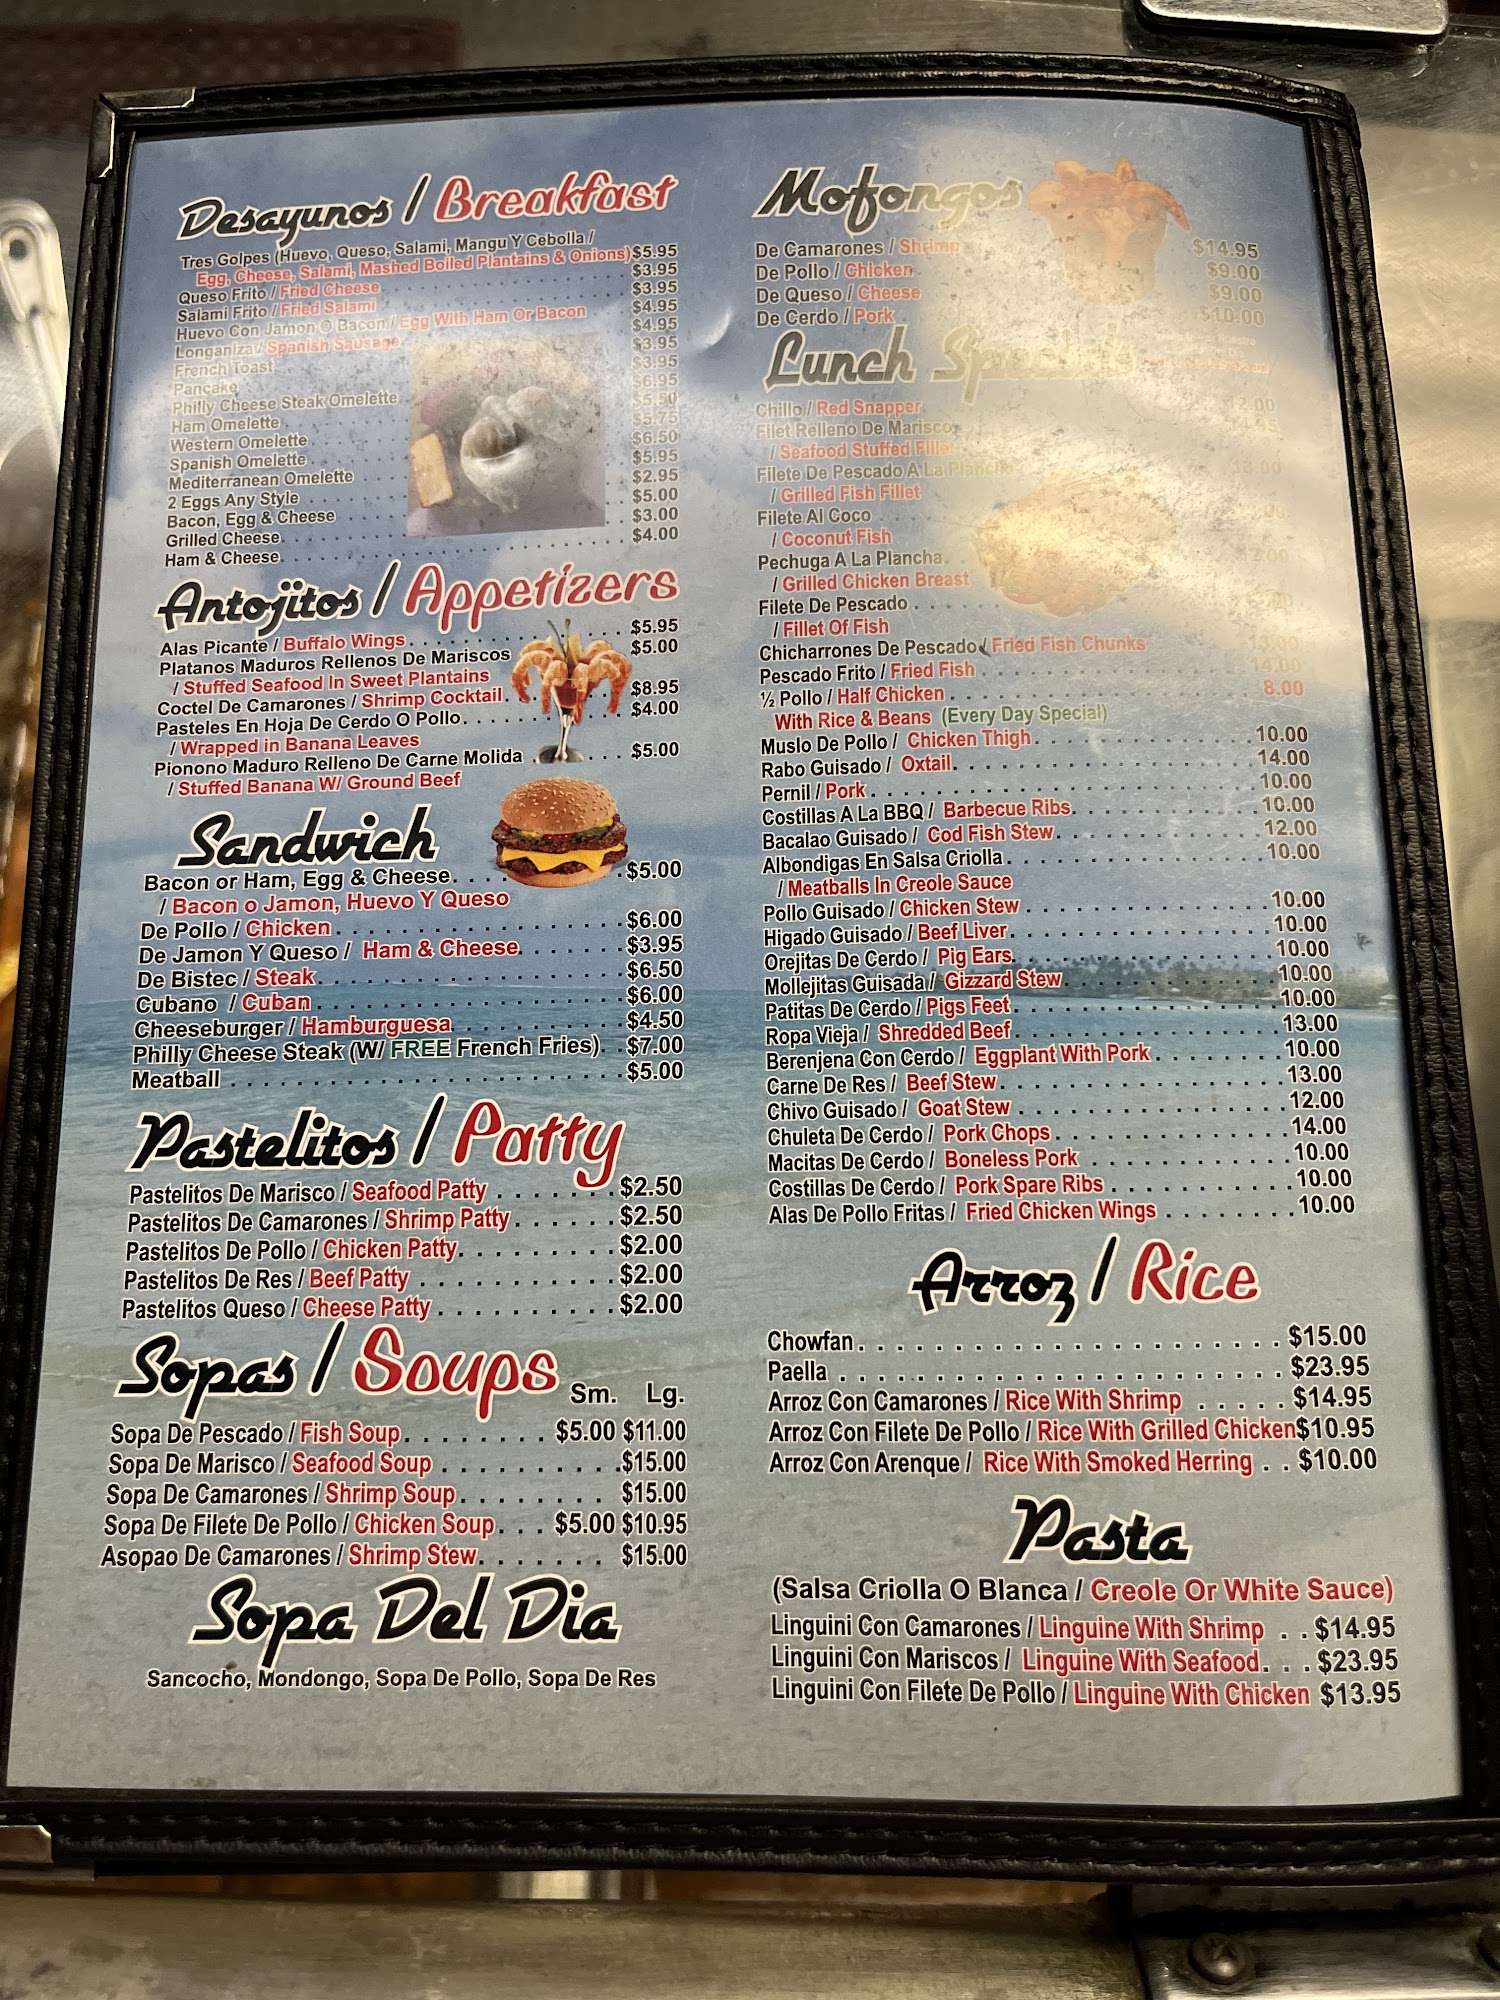 Desayunos / Breakfast
Tres Golpes (Huevo, Queso, Salami, Mangu Y Cebolla /
Egg, Cheese, Salami, Mashed Boiled Plantains & Onions) $5.95
Queso Frito / Fried Cheese $3.95
Salami Frito / Fried Salami $3.95
Huevo Con Jamon O Bacon / Egg With Ham Or Bacon $4.95
Longaniza / Spanish Sausage $4.95
French Toast $3.95
Pancake $3.95
Philly Cheese Steak Omelette $6.95
Ham Omelette $5.50
Western Omelette $5.75
Spanish Omelette $6.50
Mediterranean Omelette $5.95
2 Eggs Any Style $2.95
Bacon, Egg & Cheese $5.00
Grilled Cheese $3.00
Ham & Cheese $4.00
Antojitos / Appetizers
Alas Picante / Buffalo Wings $5.95
Platanos Maduros Rellenos De Mariscos $5.00
/ Stuffed Seafood In Sweet Plantains
Coctel De Camarones / Shrimp Cocktail $8.95
Pasteles En Hoja De Cerdo O Pollo $4.00
/ Wrapped in Banana Leaves
Pionono Maduro Relleno De Carne Molida $5.00
/ Stuffed Banana W/ Ground Beef
Sandwich
Bacon or Ham, Egg & Cheese $5.00
/ Bacon o Jamon, Huevo Y Queso
De Pollo / Chicken $6.00
De Jamon Y Queso / Ham & Cheese $3.95
De Bistec / Steak $6.50
Cubano / Cuban $6.00
Cheeseburger / Hamburguesa $4.50
Philly Cheese Steak (W/ FREE French Fries) $7.00
Meatball $5.00
Pastelitos / Patty
Pastelitos De Marisco / Seafood Patty $2.50
Pastelitos De Camarones / Shrimp Patty $2.50
Pastelitos De Pollo / Chicken Patty $2.00
Pastelitos De Res / Beef Patty $2.00
Pastelitos Queso / Cheese Patty $2.00
Sopas / Soups Sm. Lg.
Sopa De Pescado / Fish Soup $5.00 $11.00
Sopa De Marisco / Seafood Soup $15.00
Sopa De Camarones / Shrimp Soup $15.00
Sopa De Filete De Pollo / Chicken Soup $5.00 $10.95
Asopao De Camarones / Shrimp Stew $15.00
Sopa Del Dia
Sancocho, Mondongo, Sopa De Pollo, Sopa De Res
Mofongos
De Camarones / Shrimp $14.95
De Pollo / Chicken $9.00
De Queso / Cheese $9.00
De Cerdo / Pork $10.00
Lunch Specials
Chillo / Red Snapper
Filet Relleno De Marisco
/ Seafood Stuffed Fillet
Filete De Pescado A La Plancha
/ Grilled Fish Fillet
Filete Al Coco
/ Coconut Fish
Pechuga A La Plancha
/ Grilled Chicken Breast
Filete De Pescado
/ Fillet Of Fish
Chicharrones De Pescado / Fried Fish Chunks
Pescado Frito / Fried Fish 14.00
½ Pollo / Half Chicken 8.00
With Rice & Beans (Every Day Special)
Muslo De Pollo / Chicken Thigh 10.00
Rabo Guisado / Oxtail 14.00
Pernil / Pork 10.00
Costillas A La BBQ / Barbecue Ribs 10.00
Bacalao Guisado / Cod Fish Stew 12.00
Albondigas En Salsa Criolla 10.00
/ Meatballs In Creole Sauce
Pollo Guisado / Chicken Stew 10.00
Higado Guisado / Beef Liver 10.00
Orejitas De Cerdo / Pig Ears 10.00
Mollejitas Guisada / Gizzard Stew 10.00
Patitas De Cerdo / Pigs Feet 10.00
Ropa Vieja / Shredded Beef 13.00
Berenjena Con Cerdo / Eggplant With Pork 10.00
Carne De Res / Beef Stew 13.00
Chivo Guisado / Goat Stew 12.00
Chuleta De Cerdo / Pork Chops 14.00
Macitas De Cerdo / Boneless Pork 10.00
Costillas De Cerdo / Pork Spare Ribs 10.00
Alas De Pollo Fritas / Fried Chicken Wings 10.00
Arroz / Rice
Chowfan $15.00
Paella $23.95
Arroz Con Camarones / Rice With Shrimp $14.95
Arroz Con Filete De Pollo / Rice With Grilled Chicken $10.95
Arroz Con Arenque / Rice With Smoked Herring $10.00
Pasta
(Salsa Criolla O Blanca / Creole Or White Sauce)
Linguini Con Camarones / Linguine With Shrimp $14.95
Linguini Con Mariscos / Linguine With Seafood $23.95
Linguini Con Filete De Pollo / Linguine With Chicken $13.95